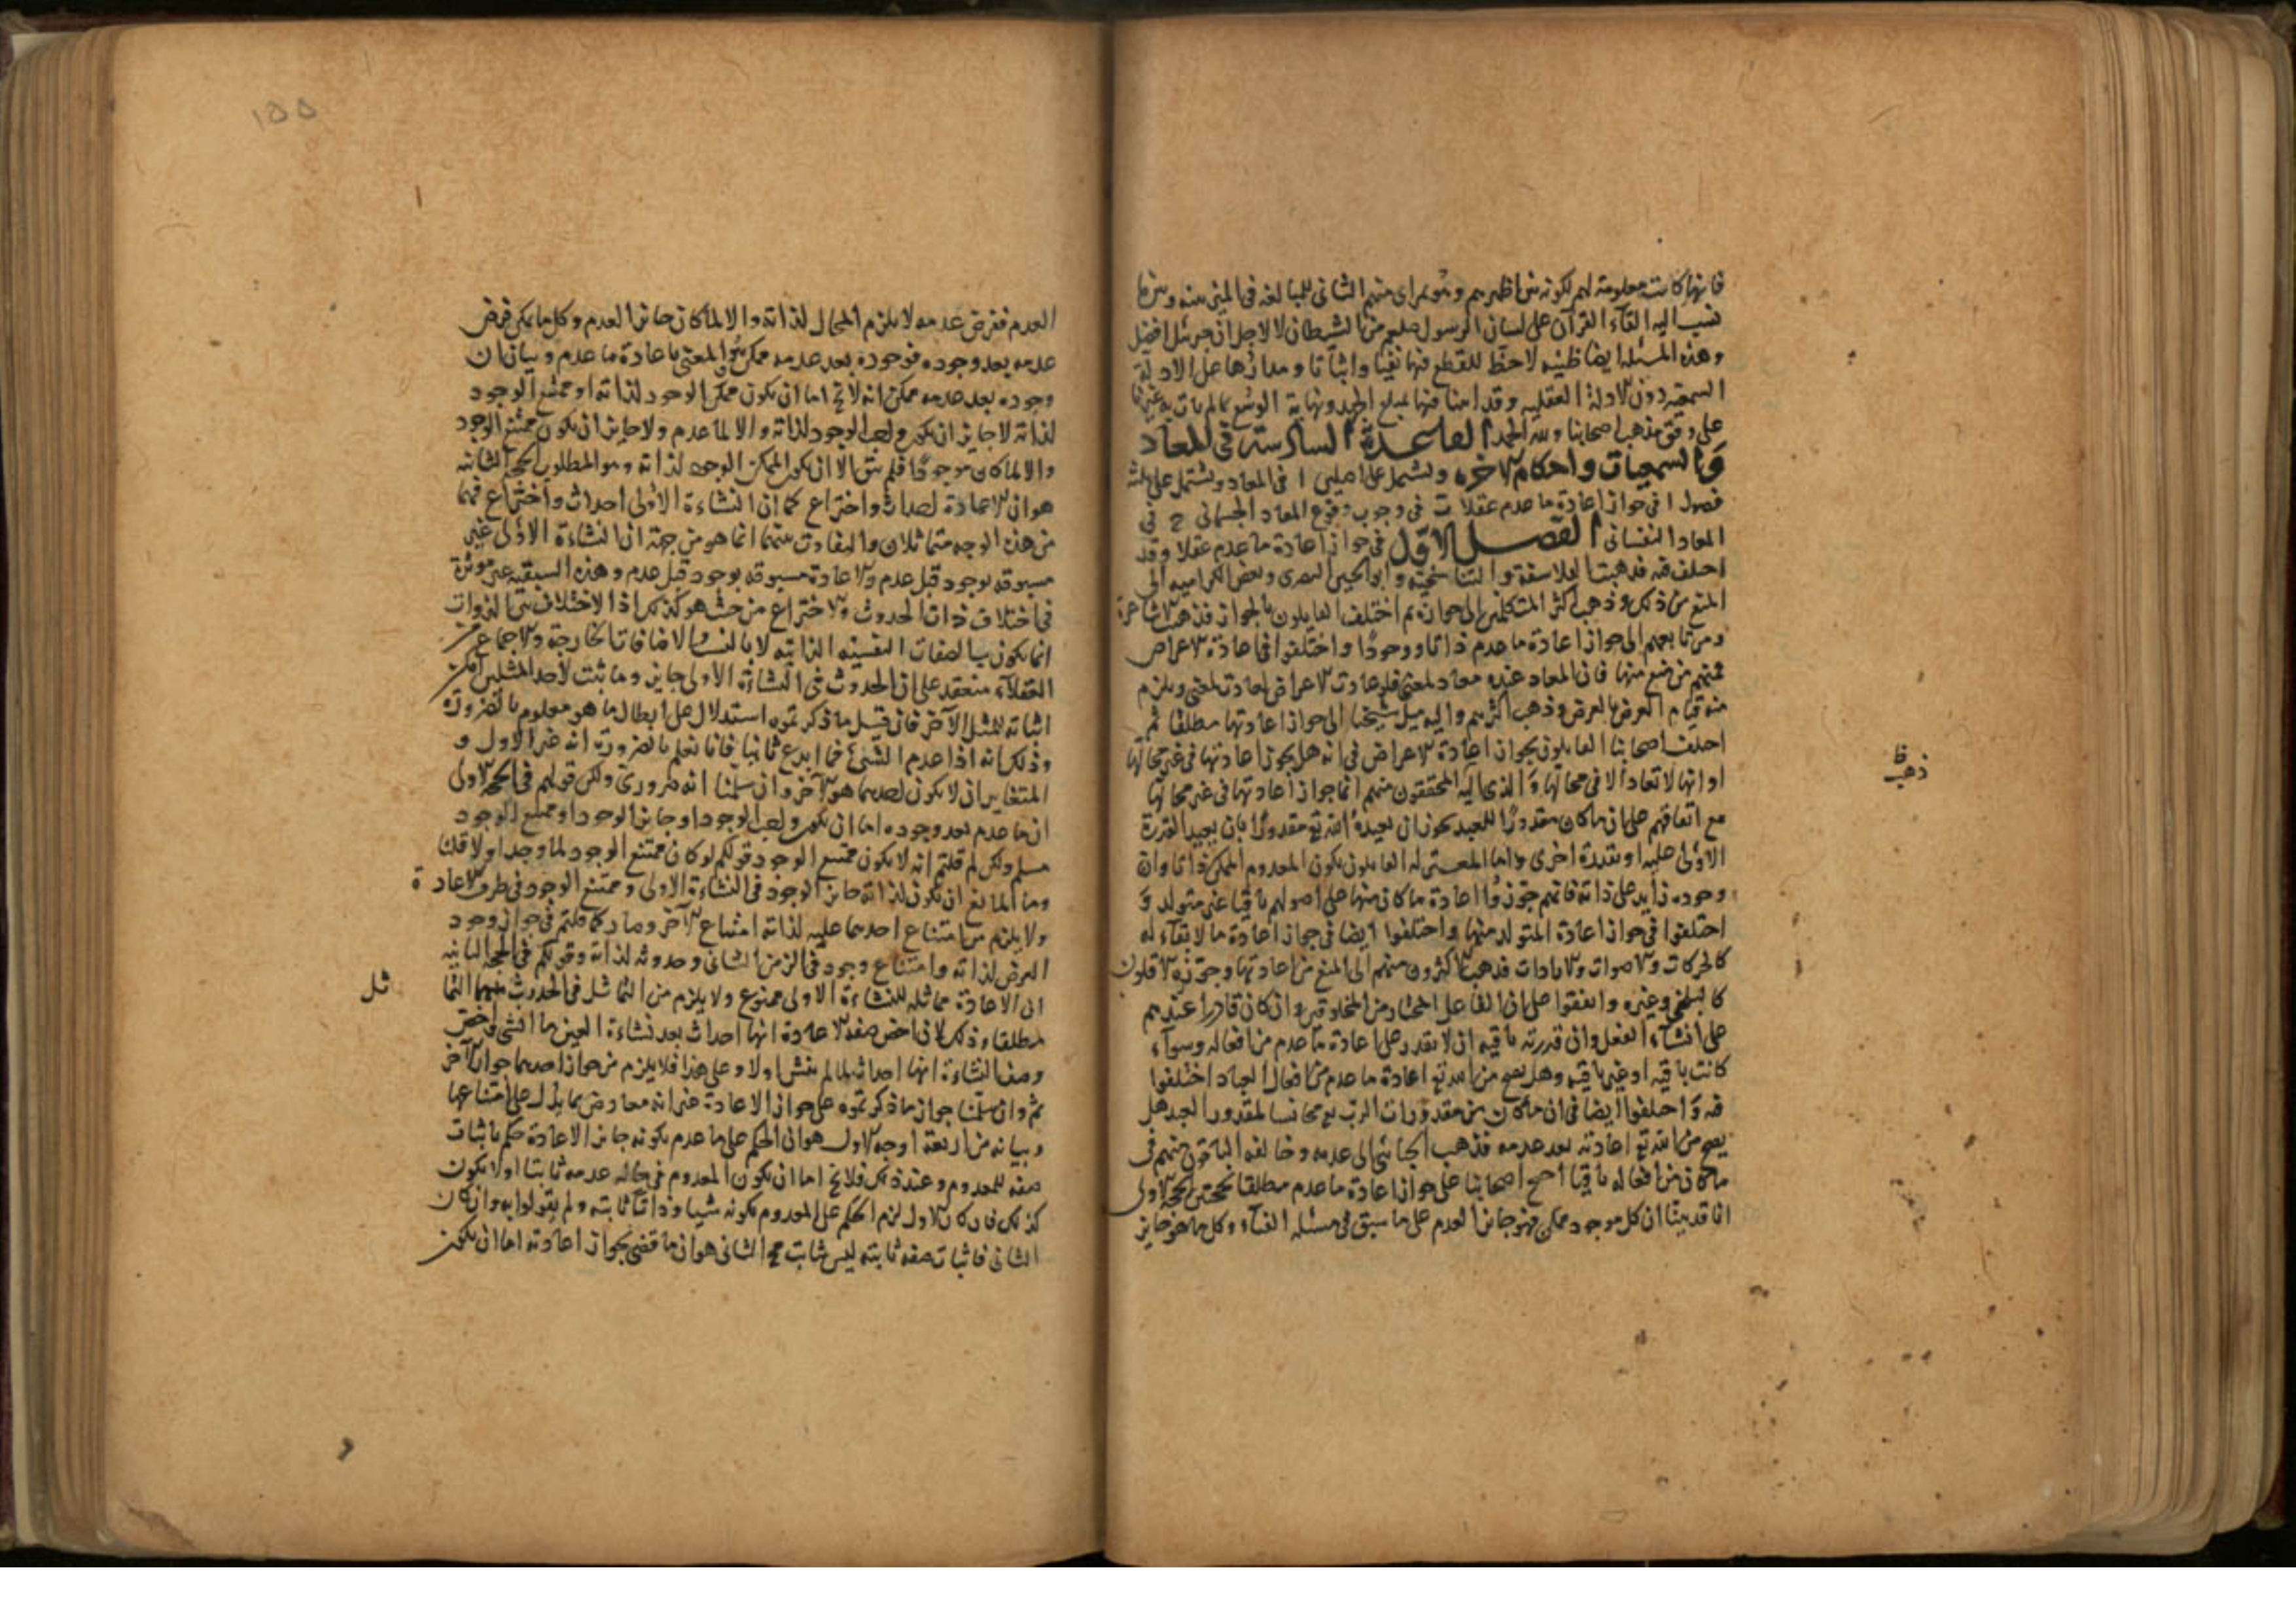 فانها كانت معلومة لهم لكونه بين اظهرهم وهو بمرأى منهم الثانى للمبالغه فى
نسب اليه القآء القرآن على لسان الرسول صلعم من الشيطان لا لاجل ان جبرئيل افضل
وهذه المسئله ايضا ظنيه لا حظ للقطع فيها نفيا واثباتا ومدارها على الادلة
السمعية دون الادلة العقليه وقد اتينا فيها بمبلغ الجهد ونهاية الوسع بما لم يات به غيرنا
على وفق مذهب اصحابنا ولله الحمد القاعدة السادسة فى المعاد
والسمعيات واحكام الاخره وتشتمل على اصلين ا فى المعاد ويشتمل على ثلث
فصول ا فى جواز اعادة ما عدم عقلا ب فى وجوب وقوع المعاد الجسمانى ج فى
المعاد النفسانى الفصل الاول فى جواز اعادة ما عدم عقلا وقد
اختلف فيه فذهبت الفلاسفة والتناسخية وابو الحسين البصرى وبعض الكراميه الى
المنع من ذلك وذهب اكثر المتكلمين الى جوازه ثم اختلف القايلون بالجواز فذهبت الاشاعرة
ومن تابعهم الى جواز اعادة ما عدم ذاتا ووجودا واختلفوا فى اعادة الاعراض
فمنهم من منع منها فان المعاد عنده معاد لمعنى فلو عادت الاعراض لعادت لمعنى ويلزم
منه قيام العرض بالعرض وذهب اكثرهم واليه ميل شيخنا الى جواز اعادتها مطلقا ثم
اختلف اصحابنا القايلون بجواز اعادة الاعراض فى انه هل يجوز اعادتها فى غير محالها
او انها لا تعاد الا فى محالها والذى اليه المحققون منهم انما جواز اعادتها فى غير محالها
ذهب ظ
مع اتفاقهم على ان ما كان مقدورا للعبد يجوز ان يعيده الله تع مقدورا بان يعيد القدرة
الاولى عليه او بقدرة اخرى واما المعتزله القايلون بكون المعدوم الممكن ذاتا وان
وجوده زايد على ذاته فانهم جوزوا اعادة ما كان منها على اصولهم باقيا غير متولد و
اختلفوا فى جواز اعادة المتولد منها واختلفوا ايضا فى جواز اعادة ما لا بقآء له
كالحركات والاصوات والارادات فذهب الاكثرون منهم الى المنع من اعادتها وجوزه الاقلون
كالبلخى وغيره واتفقوا على ان الفاعل المختار من المخلوقين وان كان قادرا عندهم
على انشآء الفعل وان قدرته باقيه ان لا يقدر على اعادة ما عدم من افعاله وسوآء
كانت باقيه او غير باقيه وهل يصح من الله تع اعادة ما عدم من افعال العباد اختلفوا
فيه واختلفوا ايضا فى ان ما كان من مقدورات الرب تع مجانسا لمقدور العبد هل
يصح من الله تع اعادته بعد عدمه فذهب الجبائى الى عدمه وخالفه الباقون منهم فى
ما كان من افعاله باقيا احتج اصحابنا على جواز اعادة ما عدم مطلقا بحجتين الحجة الاولى
انا قد بينا ان كل موجود ممكن فهو جايز العدم على ما سبق فى مسئله الفنآء وكل ما هو جايز
١٥٥
العدم ففرض عدمه لا يلزم المحال لذاته والا لما كان جايز العدم وكل ما يمكن فرض
عدمه بعد وجوده فوجوده بعد عدمه ممكن وهو المعنى باعادة ما عدم وبيان ان
وجوده بعد عدمه ممكن انه لا يخ اما ان يكون ممكن الوجود لذاته او ممتنع الوجود
لذاته لا جايز ان يكون واجب الوجود لذاته والا لما عدم ولا جايز ان يكون ممتنع الوجود
والا لما كان موجودا فلم يبق الا ان يكون ممكن الوجود لذاته وهو المطلوب الحجة الثانيه
هو ان الاعادة احداث واختراع كما ان النشاءة الاولى احداث واختراع فهما
من هذا الوجه متماثلان والتفاوت بينهما انما هو من جهة ان النشاءة الاولى غير
مسبوقه بوجود قبل عدم والاعادة مسبوقه بوجود قبل عدم وهذه السبقيه غير موثرة
فى اختلاف ذات الحدوث والاختراع من حيث هو كذلك اذ الاختلاف بين الذوات
انما يكون بالصفات النفسيه الذاتيه لا بالنسب والاضافات الخارجة والاجماع من
العقلآء منعقد على ان الحدوث فى النشاءة الاولى جايز وما ثبت لاحد المثلين امكن
اثباته للمثل الآخر فان قيل ما ذكرتموه استدلال على ابطال ما هو معلوم بالضرورة
وذلك انه اذا عدم الشئ فما ابدع ثانيا فانا نعلم بالضرورة انه غير الاول و
المتغايران لا يكون احدهما هو الآخر وان سلمنا انه ضرورى ولكن قولهم فى الحجة الاولى
ان ما عدم بعد وجوده اما ان يكون واجب الوجود او جايز الوجود او ممتنع الوجود
مسلم ولكن لم قلتم انه لا يكون ممتنع الوجود قولكم لو كان ممتنع الوجود لما وجد اولا قلنا
وما المانع ان يكون لذاته جايز الوجود فى النشاءة الاولى وممتنع الوجود فى طرف الاعادة
ولا يلزم من امتناع احدهما عليه لذاته امتناع الآخر وصار كما قلتم فى جواز وجود
العرض لذاته وامتناع وجوده فى الزمن الثانى وحدوثه لذاته وقولكم فى الحجة الثانيه
ان الاعادة مماثله للنشاءة الاولى ممنوع ولا يلزم من التماثل فى الحدوث بينهما التما
ثل
مطلقا وذلك لان اخص صفه الاعادة انها احداث بعد نشاءة العين ما انشى
وصف النشاءة انها احداث لما لم ينش اولا وعلى هذا فلا يلزم من جواز احدهما جواز الآخر
ثم وان سلمنا جواز ما ذكرتموه على جواز الاعادة غير انه معارض بما يدل على امتناعها
وبيانه من اربعة اوجه الاول هو ان الحكم على ما عدم بكونه جايز الاعادة حكم باثبات
صفه للمعدوم وعند ذلك فلا يخ اما ان يكون المعدوم فى حاله عدمه ثابتا او لا يكون
كذلك فان كان الاول لزم الحكم على المعدوم بكونه شيا وذاتا ثابته ولم يقولوا به وان كان
الثانى فاثبات صفه ثابته ليس بثابت مح الثانى هو ان ما قضى بجواز اعادته اما ان يكون